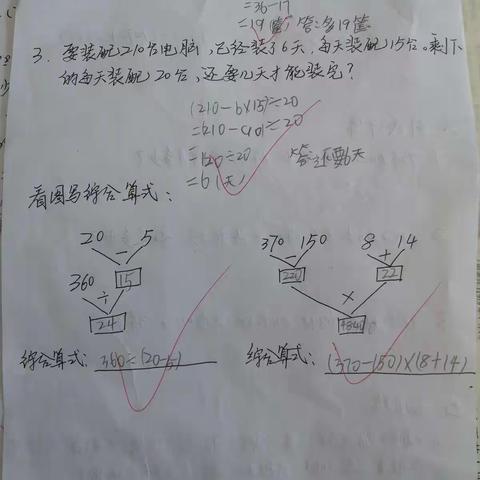 =36-17
=19(筐) 答:多19筐
3. 要装配210台电脑,已经装了6天,每天装配15台。剩下
的每天装配20台,还要几天才能装完?
(210-6×15)÷20
=(210-90)÷20
=120÷20 答:还要6天
=6(天)
看图写综合算式:
20 - 5
360 ÷ 15
24
370 - 150
8 + 14
220 × 22
4840
综合算式: 360÷(20-5)
综合算式: (370-150)×(8+14)